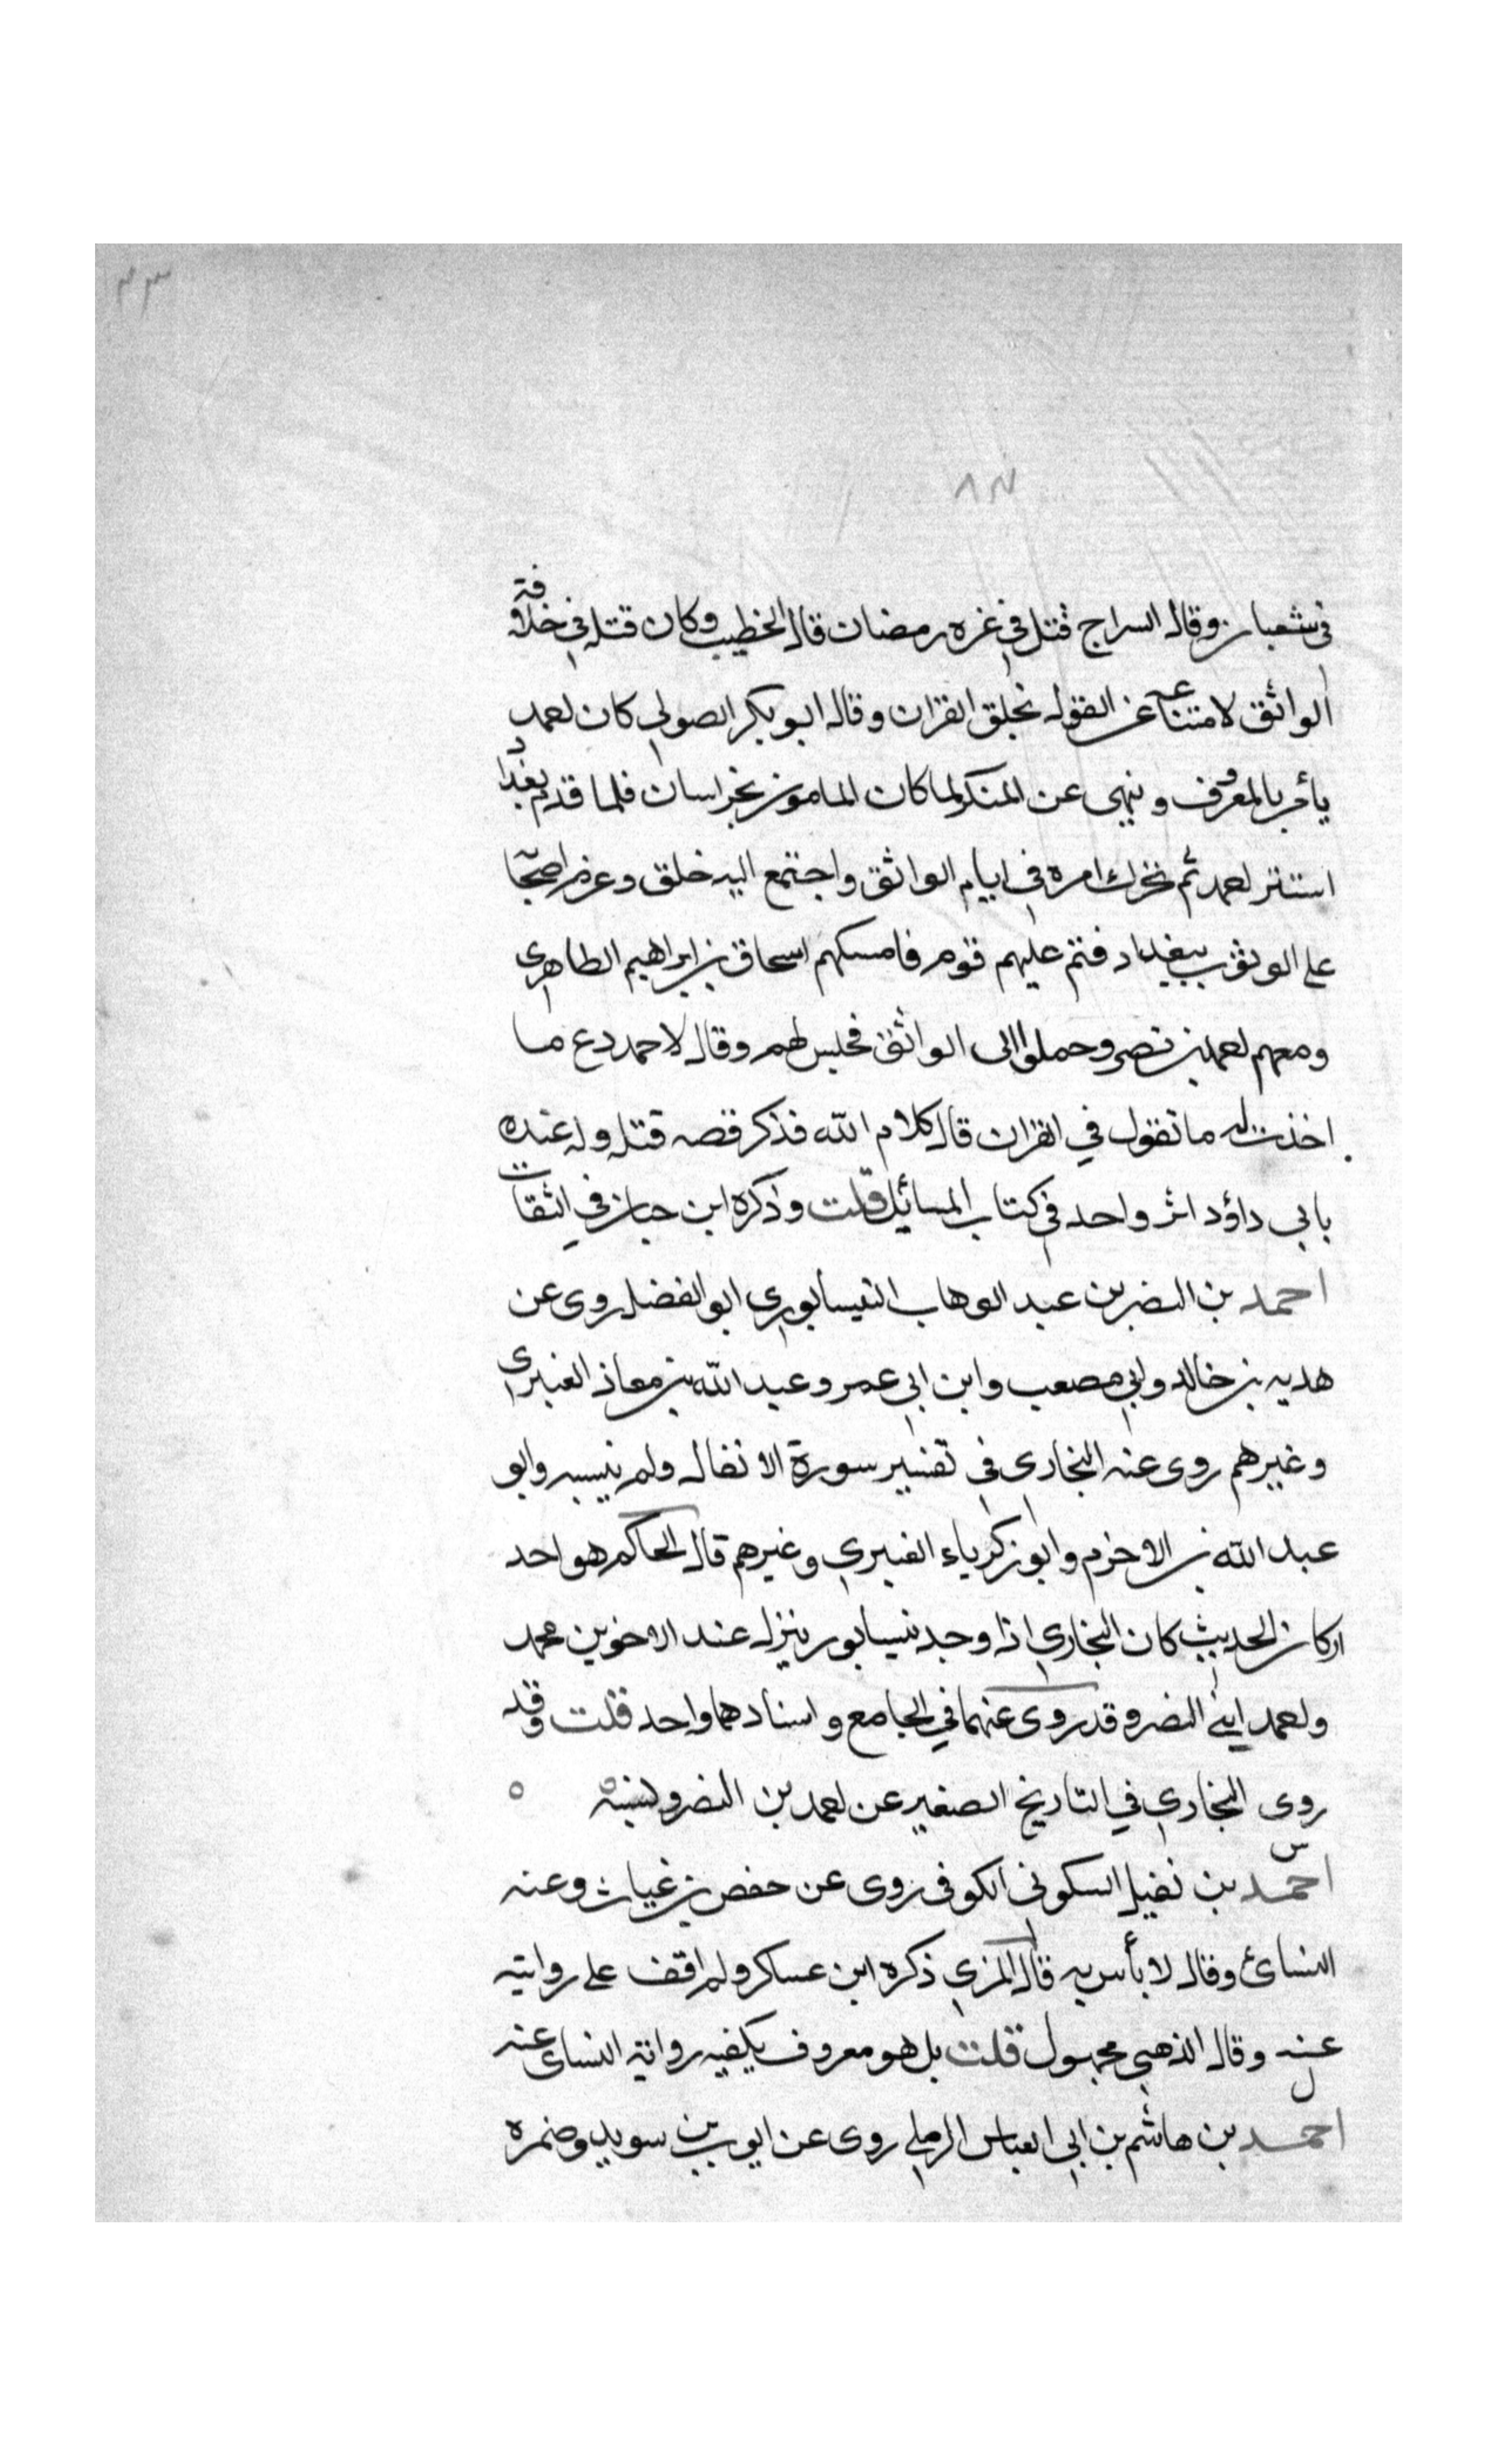 ٣٣
٨٣
في شعبان وقال السراج قتل في غره رمضان قال الخطيب وكان قتله في خلافته
الواثق لامتناعه عن القول بخلق القران وقال ابو بكر الصولي كان احمد
يأمر بالمعروف وينهى عن المنكر لما كان المامون بخراسان فلما قدم بغداد
استتر احمد ثم تحرك امره في ايام الواثق واجتمع اليه خلق وعزم اصحابه
على الوثوب ببغداد فتم عليهم قوم فامسكهم اسحاق بن ابراهيم الطاهرى
ومعهم احمد بن نصر وحملوا الى الواثق فجلس لهم وقال لاحمد دع ما
اخذت له ما تقول في القران قال كلام الله فذكر قصه قتله وله عنده
بابي داؤد اثر واحد في كتاب المسائيل قلت وذكره ابن حبان في الثقات
احمد بن النضر بن عبد الوهاب النيسابوري ابو الفضل روى عن
هدبه بن خالد وابي مصعب وابن ابي عمر وعبيد الله بن معاذ العنبرى
وغيرهم روى عنه البخارى في تفسير سورة الانفال ولم ينسبه وابو
عبد الله بن الاخرم وابو زكرياء العنبري وغيرهم قال الحاكم هو احد
اركان الحديث كان البخاري اذا وجد نيسابور ينزل عند الاخوين محمد
واحمد ابني النضر وقد روى عنهما في الجامع واسنادهما واحد قلت وقد
روى البخاري في التاريخ الصغير عن احمد بن النضر ونسبه ٥
س
احمد بن نفيل السكوني الكوفى روى عن حفص بن غياث وعنه
النسائ وقال لا بأس به قال المزي ذكره ابن عساكر ولم اقف على روايته
عنه وقال الذهبي مجهول قلت بل هو معروف يكفيه رواية النساى عنه
ل
احمد بن هاشم بن ابي العباس الرملي روى عن ايوب بن سويد وضمره